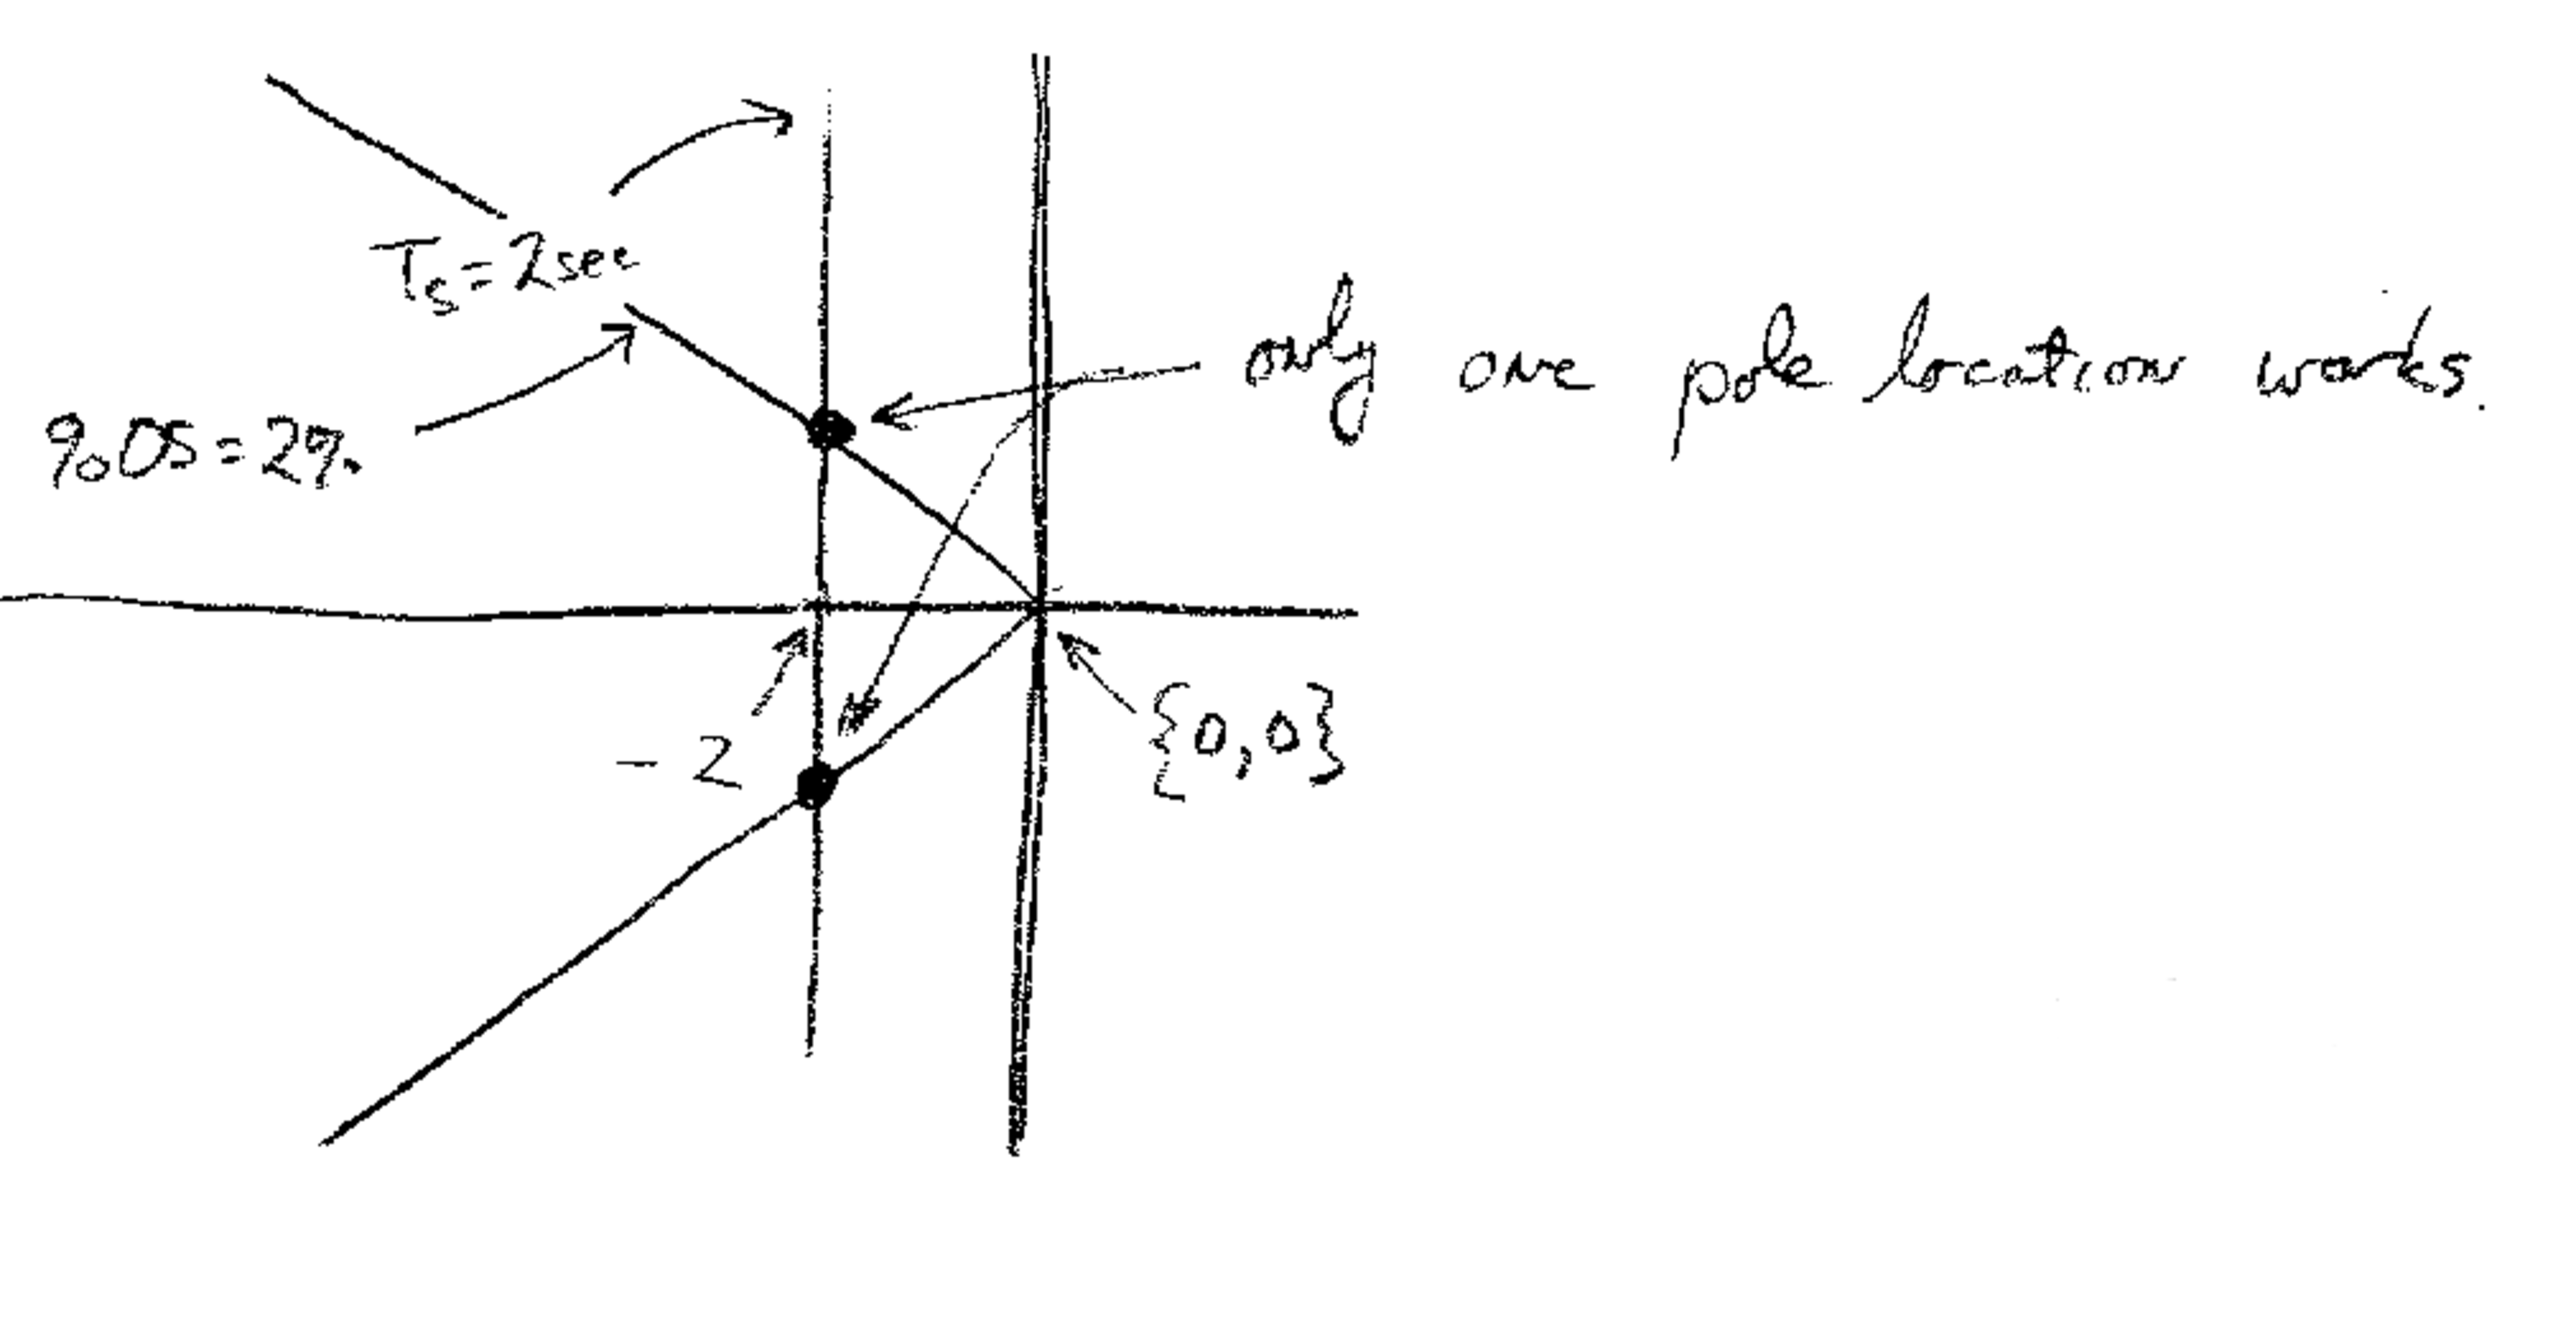 Ts=2sec
only one pole location works.
%OS=2%
-2
{0,0}